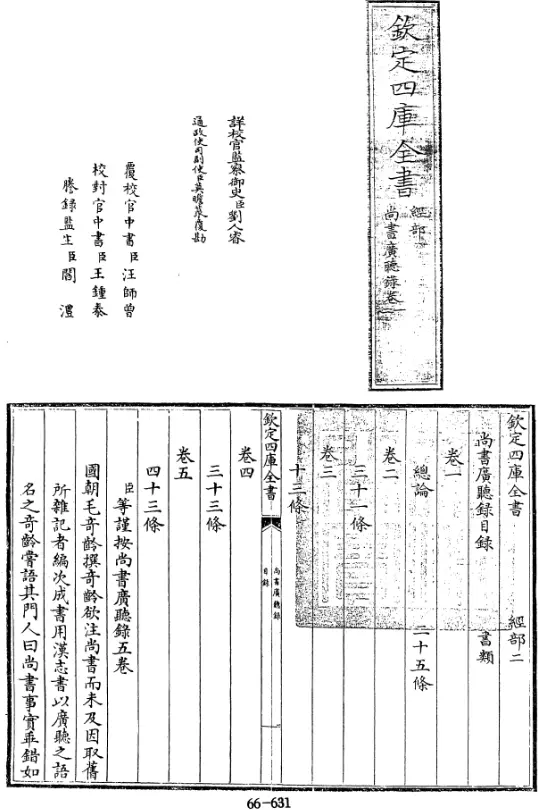 欽定四庫全書
經部
尚書廣聽錄卷一
詳校官監察御史臣劉人睿
通政使司副使臣莫瞻菉覆勘
覆校官中書臣汪師曾
校對官中書臣王鍾泰
謄錄監生臣閻澧
欽定四庫全書 經部二
尚書廣聽錄目錄 書類
卷一
總論 二十五條
卷二
三十一條
卷三
十三條
欽定四庫全書
尚書廣聽錄
目錄
卷四
三十三條
卷五
四十三條
臣等謹按尚書廣聽錄五卷
國朝毛奇齡撰奇齡欲注尚書而未及因取舊
所雜記者編次成書用漢志書以廣聽之語
名之奇齡嘗語其門人曰尚書事實乖錯如
66-631